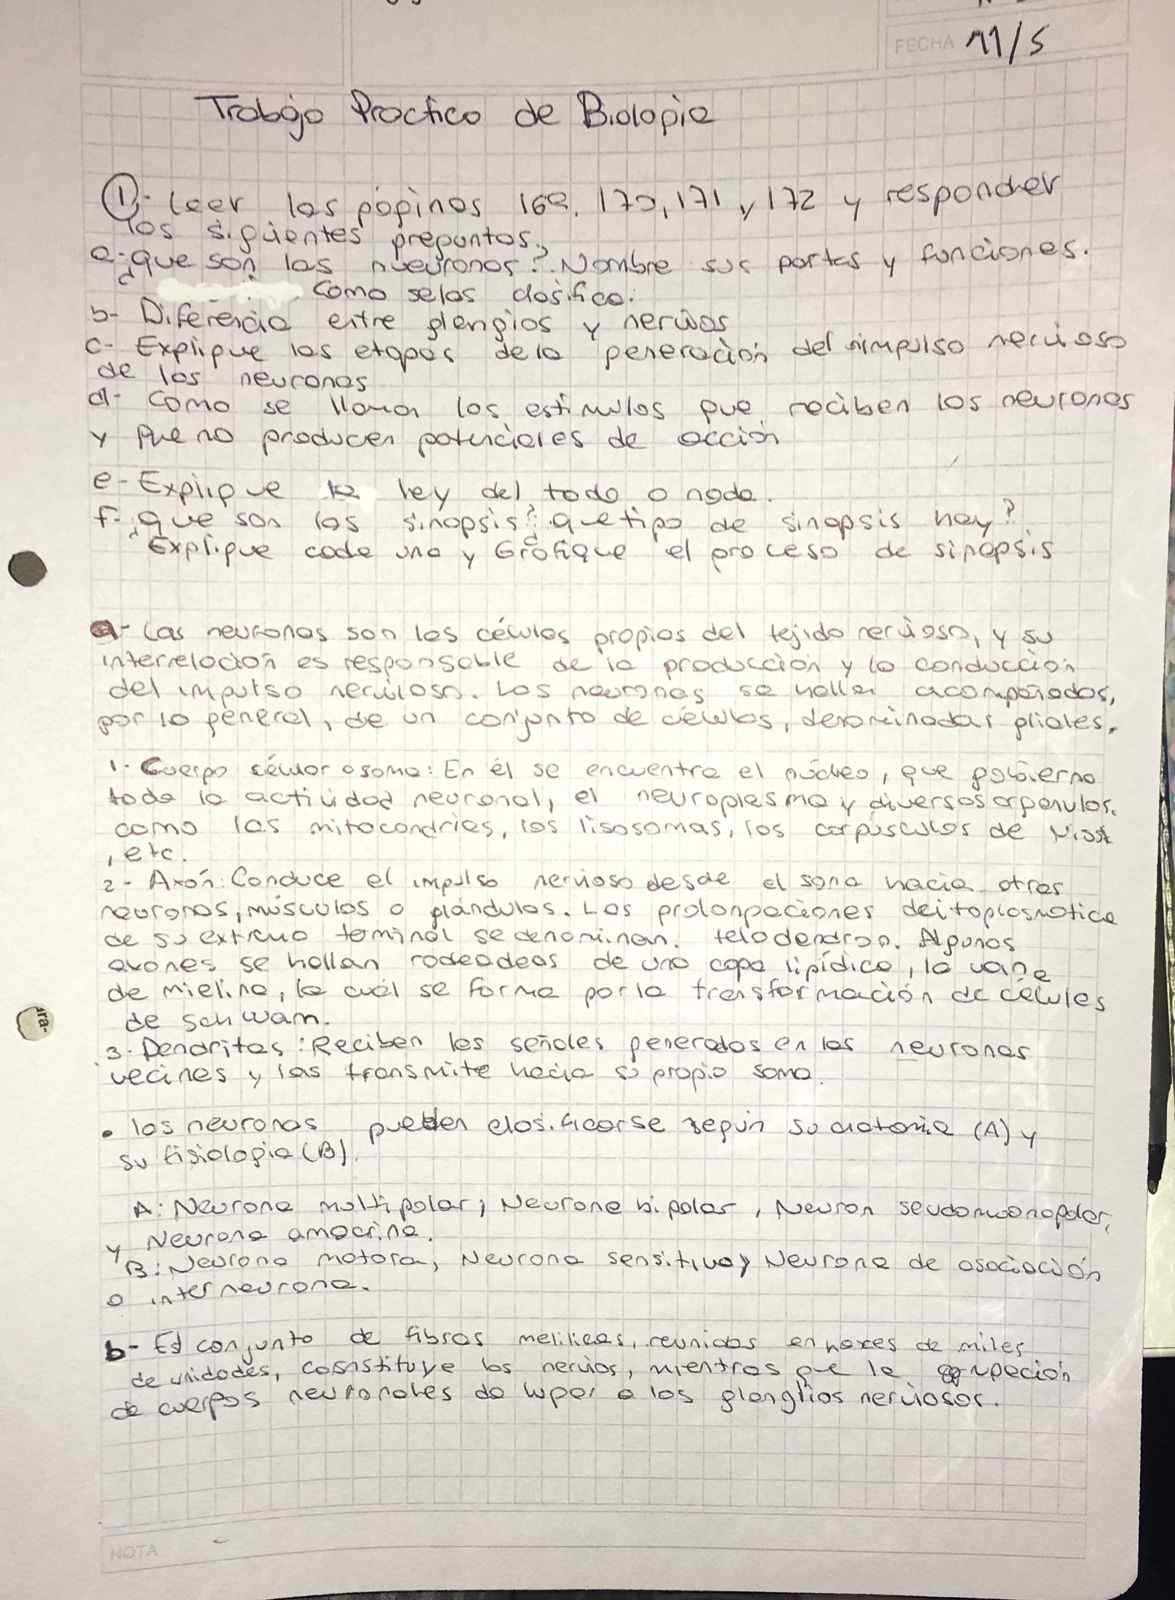 FECHA 11/5
Trabajo Practico de Biologia
1- Leer las páginas 169, 170, 171, y 172 y responder
los siguientes preguntas.
a- ¿que son las nueuronas? Nombre sus partes y funciones.
Como selas clasifica.
b- Diferencia entre glangios y nervios
c- Explique las etapas dela generación del impulso nervioso
de las neuronas
d- Como se llaman los estimulos que reciben las neuronas
y que no producen potenciales de acción
e- Explique la ley del todo o nada.
f- ¿que son las sinapsis? ¿que tipo de sinapsis hay?
Explique cada una y Grafique el proceso de sinapsis
a- Las neuronas son las células propias del tejido nervioso, y su
interrelación es responsable de la producción y la conducción
del impulso nervioso. Las neuronas se hallan acompañadas,
por lo general, de un conjunto de células, denominadas gliales.
1- Cuerpo célular o soma: En él se encuentra el núcleo, que gobierna
toda la actividad neuronal, el neuroplasma y diversos organulos.
como las mitocondrias, los lisosomas, los corpúsculos de Nissl
, etc.
2- Axón: Conduce el impulso nervioso desde el soma hacia otras
neuronas, músculos o glándulas. Las prolongaciones citoplasmatica
de su extremo terminal se denominan. telodendron. Algunos
axones se hallan rodeadeas de una capa lipídica, la vaina
de mielina, la cual se forma por la transformación de células
de schwam.
3- Dendritas: Reciben las señales generadas en las neuronas
vecinas y las transmite hacia su propio soma.
• las neuronas pueden clasificarse según su anatomia (A) y
su fisiologia (B).
A: Neurona multipolar, Neurona bipolar, Neuron seudomonopolar,
y Neurona amacrina.
B: Neurona motora, Neurona sensitiva y Neurona de asociación
o interneurona.
b- El conjunto de fibras reunidas en haces de miles
de unidades, cosnstituye los nervios, mientras que la agrupación
de cuerpos neuronales da lugar a los glanglios nerviosos.
NOTA